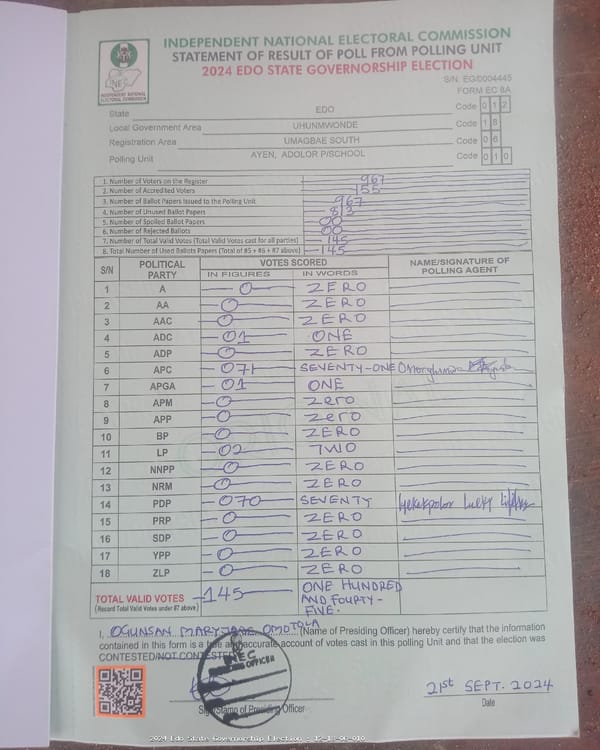 INDEPENDENT NATIONAL ELECTORAL COMMISSION
STATEMENT OF RESULT OF POLL FROM POLLING UNIT
2024 EDO STATE GOVERNORSHIP ELECTION
INEC
INDEPENDENT NATIONAL
ELECTORAL COMMISSION
S/N: EG/D004445
FORM EC 8A
State EDO Code 0 1 2
Local Government Area UHUNMWONDE Code 1 8
Registration Area UMAGBAE SOUTH Code 0 6
Polling Unit AYEN, ADOLOR P/SCHOOL Code 0 1 0
1. Number of Voters on the Register 967
2. Number of Accredited Voters 155
3. Number of Ballot Papers Issued to the Polling Unit 967
4. Number of Unused Ballot Papers
5. Number of Spoiled Ballot Papers 00
6. Number of Rejected Ballots 00
7. Number of Total Valid Votes (Total Valid Votes cast for all parties) 145
8. Total Number of Used Ballots Papers (Total of #5 + #6 + #7 above) 145
S/N POLITICAL PARTY VOTES SCORED NAME/SIGNATURE OF POLLING AGENT
IN FIGURES IN WORDS
1 A 0 ZERO
2 AA 0 ZERO
3 AAC 0 ZERO
4 ADC 01 ONE
5 ADP 0 ZERO
6 APC 071 SEVENTY-ONE
7 APGA 01 ONE
8 APM 0 zero
9 APP 0 zero
10 BP 0 ZERO
11 LP 02 TWO
12 NNPP 0 ZERO
13 NRM 0 ZERO
14 PDP 070 SEVENTY Lucky
15 PRP 0 ZERO
16 SDP 0 ZERO
17 YPP 0 ZERO
18 ZLP 0 ZERO
TOTAL VALID VOTES 145 ONE HUNDRED
(Record Total Valid Votes under #7 above) AND FOURTY-
FIVE.
I, OGUNSAN MARYJANE OMOTOLA (Name of Presiding Officer) hereby certify that the information
contained in this form is a true and accurate account of votes cast in this polling Unit and that the election was
CONTESTED/NOT CONTESTED
INEC
PRESIDING OFFICER
21st SEPT. 2024
Sign/Stamp of Presiding Officer Date
2024 Edo State Governorship Election - 12-18-06-010